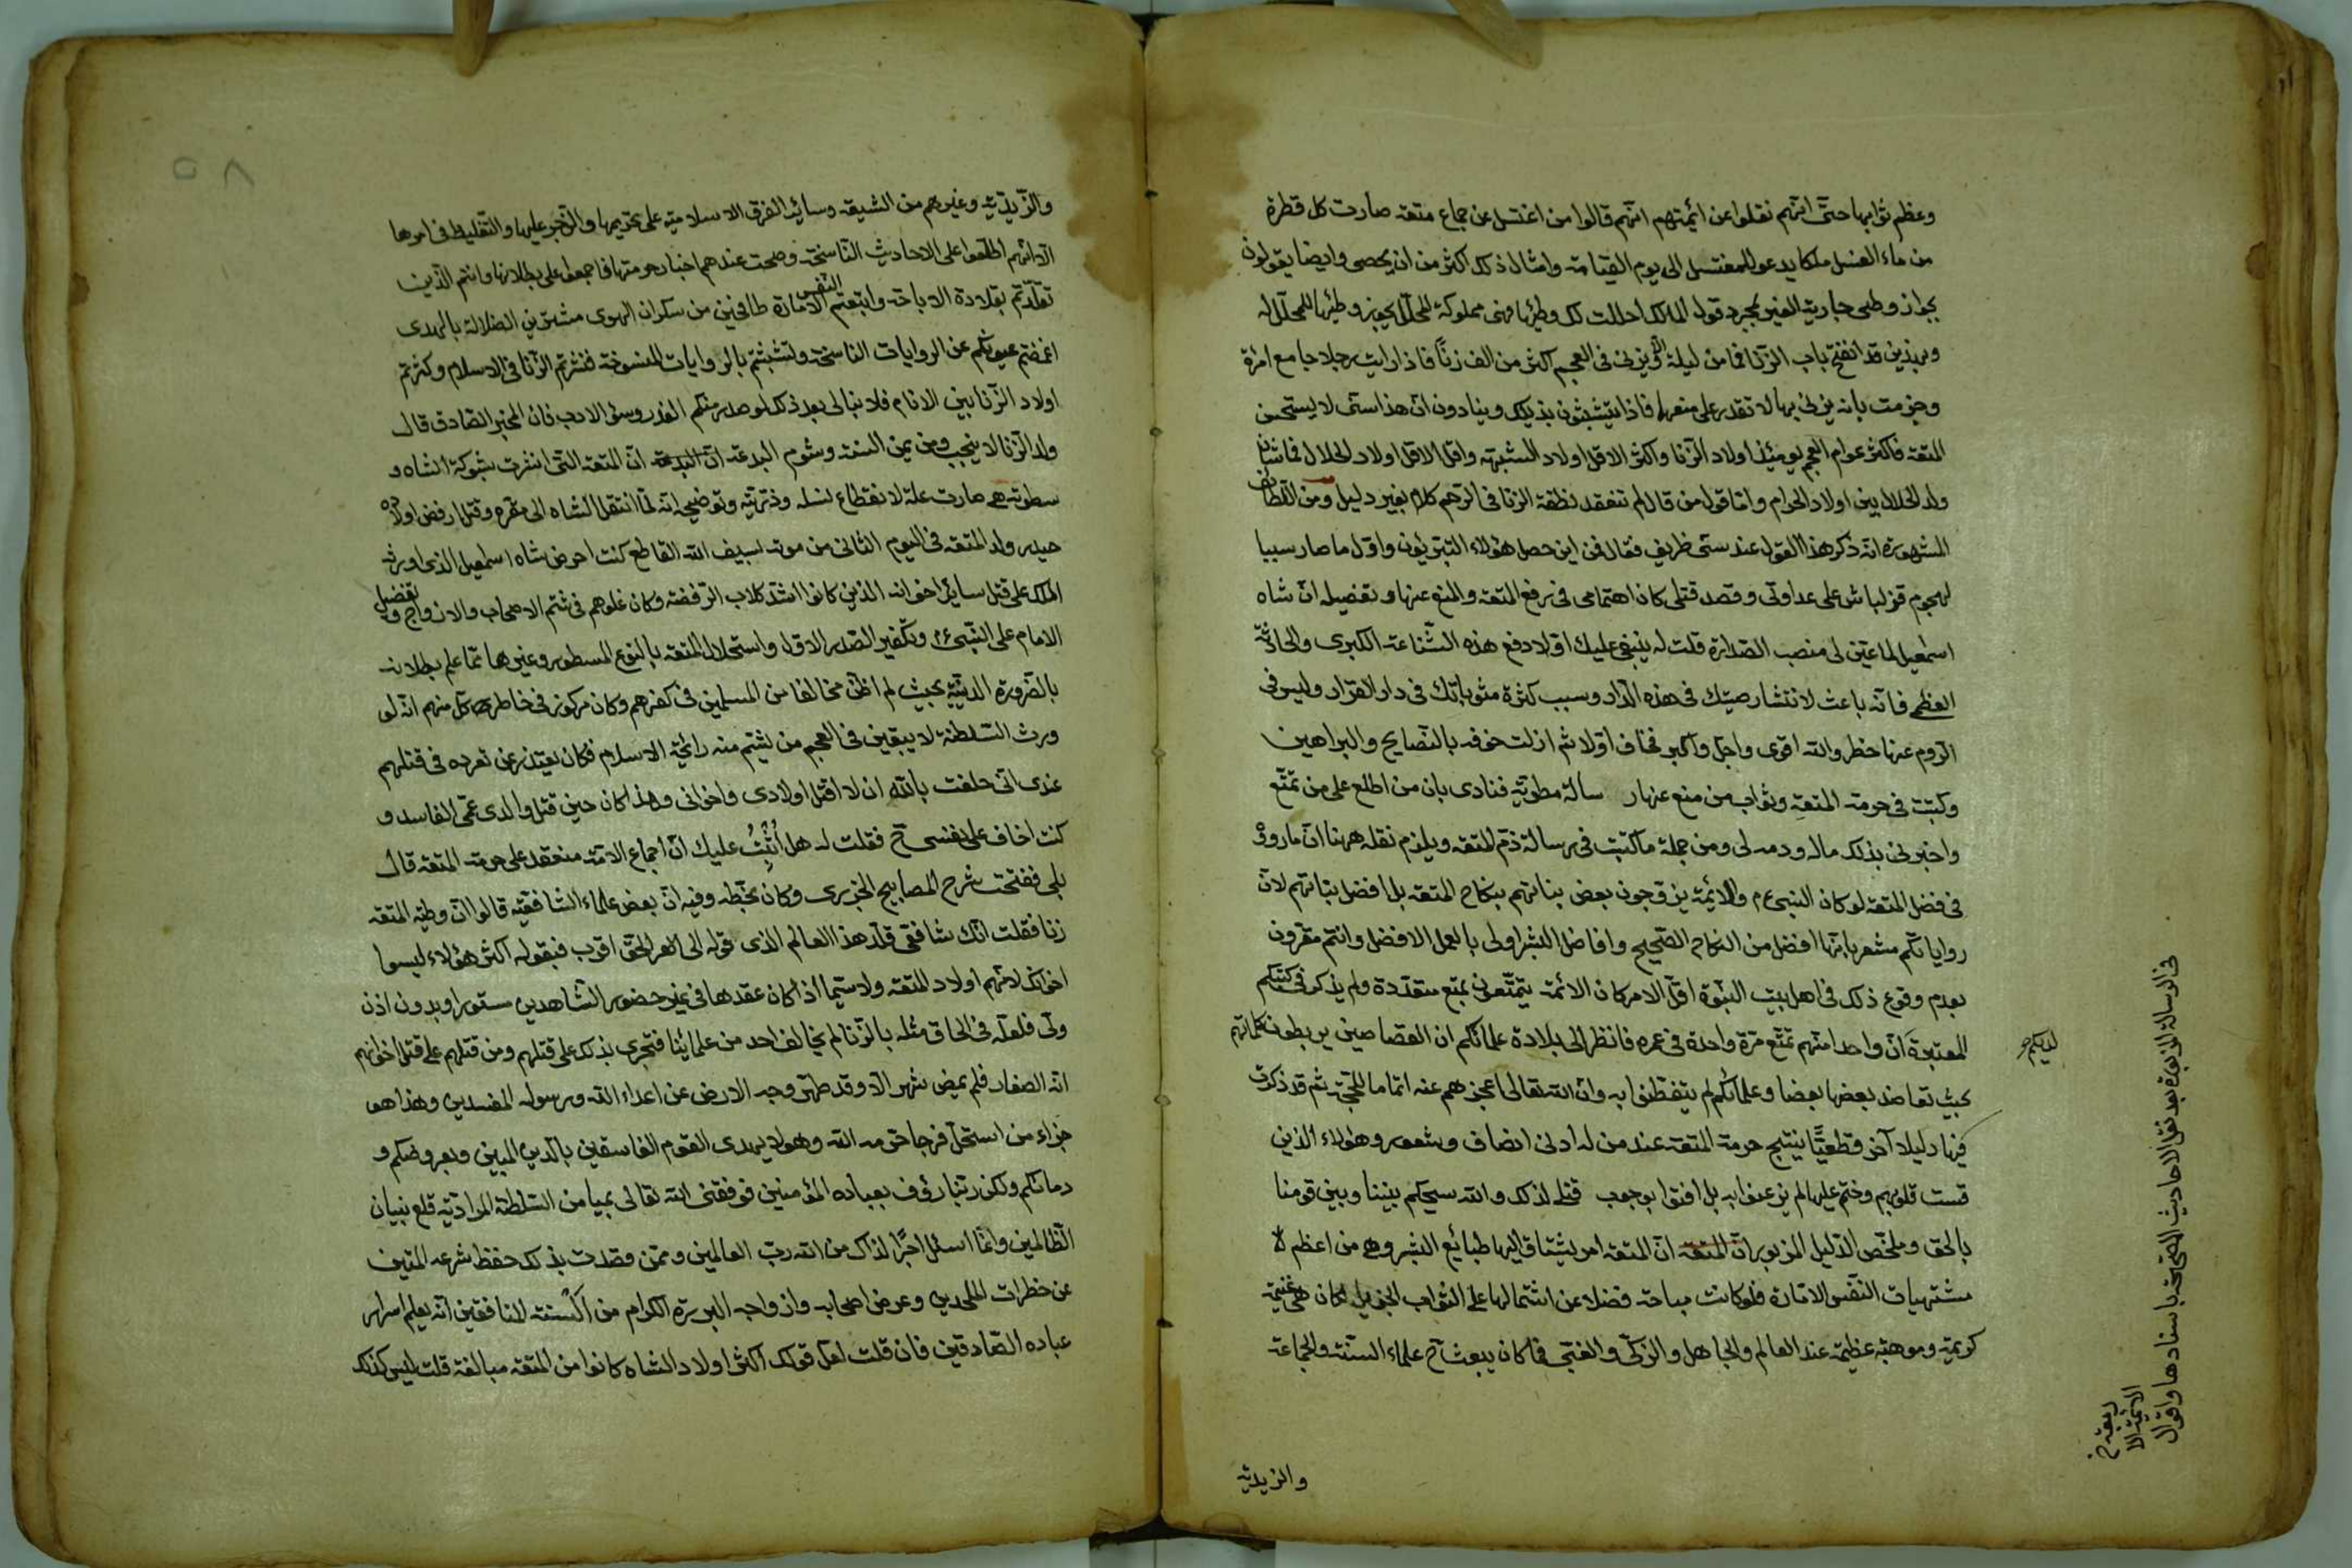 وعظم ثوابها حتى انهم نقلوا عن ائمتهم انهم قالوا من اغتسل عن جماع متعة صارت كل قطرة
من ماء الغسل ملكا يدعو للمغتسل الى يوم القيامة وامثال ذلك اكثر من ان يحصى وايضا يقولون
بجواز وطى جارية الغير بمجرد قول المالك احللت لك وطيها فهى مملوكة للمحلل يجوز وطيها للمحلل له
وبهذين قد انفتح باب الزنا فما من ليلة الا ويزنى فى العجم اكثر من الف زنا فاذا رايت رجلا جامع امرة
وجزمت بانه يزنى بها لا تقدر على منعهما فاذا يتشبثون بذيلك وينادون ان هذا سنى لا يستحسن
المتعة فاكثر عوام العجم يومئذ اولاد الزنا واكثر الاقل اولاد الشبهة واقل الاقل اولاد الحلال فما شان
ولد الحلال بين اولاد الحرام واما قول من قال لم تنعقد نطفة الزنا فى الرحم كلام بغير دليل ومن اللطائف
المشهورة انه ذكر هذا القول عند سنى ظريف فقال فمن اين حصل هؤلاء التبريزيون واول ما صار سببا
لهجوم قزلباش على عداوتى وقصد قتلى كان اهتمامى فى رفع المتعة والمنع عنها وتفصيله ان شاه
اسمعيل لما عين لى منصب الصدارة قلت له ينبغى عليك اولا دفع هذه الشناعة الكبرى والحادثة
العظمى فانه باعث لانتشار صيتك فى هذه الدار وسبب كثرة مثوباتك فى دار القرار وليس فى
الزوم عنها خطر والله اقوى واجل واكبر فخاف اولا ثم ازلت خوفه بالنصايح والبراهين
وكتبت فى حرمة المتعة وثواب من منع عنها رسالة مطوية فنادى بان من اطلع على من تمتع
واخبرنى بذلك ماله ودمه لى ومن جملة ما كتبت فى رسالة ذم المتعة ويلزم نقله ههنا ان ما رووا
فى فضل المتعة لو كان النبى عم والائمة يزوجون بعض بناتهم بنكاح المتعة بل افضل بناتهم لان
رواياتكم مشعر بانها افضل من النكاح الصحيح وافاضل البشر اولى بالعمل الافضل وانتم مقرون
بعدم وقوع ذلك فى اهل بيت النبوة اقل الامر كان الائمة يتمتعون بمتع متعددة ولم يذكر فى كتبكم
المعتبرة ان واحدا منهم تمتع مرة واحدة فى عمره فانظر الى بلادة علمائكم ان القصاصين يربطون كلماتهم
لديكم صح
بحيث تعاضد بعضها بعضا وعلمائكم لم يتفطنوا به وان الله تعالى اعجزهم عنه اتماما للحجة ثم قد ذكرت
فيها دليلا آخر قطعيا ينتج حرمة المتعة عند من له ادنى انصاف وشعور وهؤلاء الذين
قست قلوبهم وختم عليها لم يذعنوا به بل افتوا بوجوب قتلى لذلك والله سيحكم بيننا وبين قومنا
بالحق وملخص الدليل المزبور ان المتعة ان المتعة امر يشتاق اليها طبائع البشر وهى من اعظم
مشتهيات النفس الامارة فلو كانت مباحة فضلا عن اشتمالها على الثواب الجزيل لكان هى غنيمة
كريمة وموهبة عظيمة عند العالم والجاهل والزكى والغبى فما كان يبعث ح علماء السنة والجماعة
فى الرسالة المزبورة بعد نقل الاحاديث الصحيحة باسنادها واقوال
الائمة الا
ربعة خ
والزيدية
٥٨
والزيدية وغيرهم من الشيعة وسائر الفرق الاسلامية على تحريمها والزجر عليها والتغليظ فى امرها
الا انهم اطلعوا على الاحاديث الناسخة وصحت عندهم اخبار حرمتها فاجمعوا على بطلانها وانتم الذين
تقلدتم بقلادة الاباحة واتبعتم النفس الامارة طافحين من سكران الهوى مشترين الضلالة بالهدى
اغمضتم عيونكم عن الروايات الناسخة وتشبثتم بالروايات المنسوخة فنشرتم الزنا فى الاسلام وكثرتم
اولاد الزنا بين الانام فلا نبالى بعد ذلك لو صدر منكم الغدر وسوء الادب فان المخبر الصادق قال
ولد الزنا لا ينجب ومن يمن السنة وشوم البدعة ان البدعة ان المتعة التى انتشرت بشوكة الشاه و
سطوته هى صارت علة لانقطاع نسله وذريته وتوضيحه انه لما انتقل الشاه الى مقره وقتل ارفض اولاده
حيدر ولد المتعة فى اليوم الثانى من موته بسيف الله القاطع كنت احرض شاه اسمعيل الذى اورثه
الملك على قتل سائر اخوانه الذين كانوا اشد كلاب الرفضة وكان غلوهم فى شتم الاصحاب والازواج وتفضيل
الامام على النبى عم وتكفير الصدر الاول واستحلال المتعة بالنوع المسطور وغيرها مما علم بطلانه
بالضرورة الدينية بحيث لم اظن مخالفا من المسلمين فى كفرهم وكان مركوز فى خاطر كل منهم انه لو
ورث السلطنة لا يبقين فى العجم من يشتم منه رائحة الاسلام فكان يعتذر عن تمرده فى قتلهم
عندى انى حلفت بالله ان لا اقتل اولادى واخوانى وهذا كان حين قتل والدى عمى الفاسد و
كنت اخاف على نفسى ح فقلت له هل أُثْبِتُ عليك ان اجماع الامة منعقد على حرمة المتعة قال
بلى ففتحت شرح المصابيح للجزرى وكان بخطه وفيه ان بعض علماء الشافعية قالوا ان وطئ المتعة
زنا فقلت انك شافعى قلد هذا العالم الذى قوله الى الامر الحق اقرب فبقوله اكثر هؤلاء ليسوا
اخوانك لانهم اولاد المتعة ولا سيما اذا كان عقدها فى غير حضور الشاهدين مستورا وبدون اذن
ولى فلعله فى الحاق مثله بالزنا لم يخالف احد من علمائنا فتجرى بذلك على قتلهم ومن قتلهم على قتل اخوانهم
انه الصغار فلم يمض شهر الا وقد طهر وجه الارض عن اعداء الله ورسوله المفسدين وهذا هو
جزاء من استحل فرجا حرمه الله وهو لا يهدى القوم الفاسقين بالدين المبين وبعروضكم و
دمائكم ولكن ربنا رؤف بعباده المؤمنين فوفقنى الله تعالى بميامن السلطنة المرادية قلع بنيان
الظالمين وانما اسئل اجرا لذاك من الله رب العالمين وممن قصدت بذلك حفظ شرعه المتين
عن خطرات الملحدين وعرض اصحابه وازواجه البررة الكرام من السنة المنافقين انه يعلم اسرار
عباده الصادقين فان قلت لعل قولك اكثر اولاد الشاه كانوا من المتعة مبالغة قلت ليس كذلك